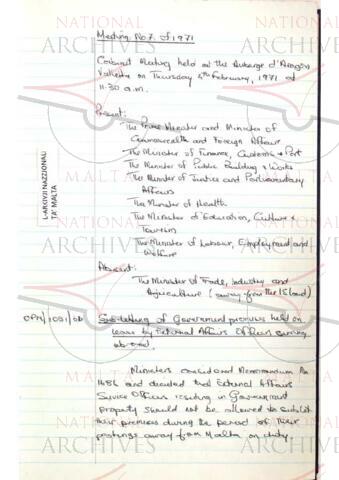 Meeting No 7. of 1971
Cabinet Meeting held at the Auberge d'Aragon
Valletta on Thursday 4th February, 1971 at
11.30 a.m.
Present:
The Prime Minister and Minister of
Commonwealth and Foreign Affairs
The Minister of Finance, Customs & Port
The Minister of Public Building & Works
The Minister of Justice and Parliamentary
Affairs
The Minister of Health
The Minister of Education, Culture &
Tourism
The Minister of Labour, Employment and
Welfare
Absent:
The Minister of Trade, Industry and
Agriculture (away from the Island)
OPM/1091/
Sub-letting of Government premises held on
lease by External Affairs Officers serving
Ministers considered Memorandum No
1486 and decided that External Affairs
Service Officers residing in Government
Property should not be allowed to sublet
their premises during the period of their
postings away from Malta on duty.
L-ARKIVJI NAZZJONALI
TA' MALTA
NATIONAL
ARCHIVES
MALTA